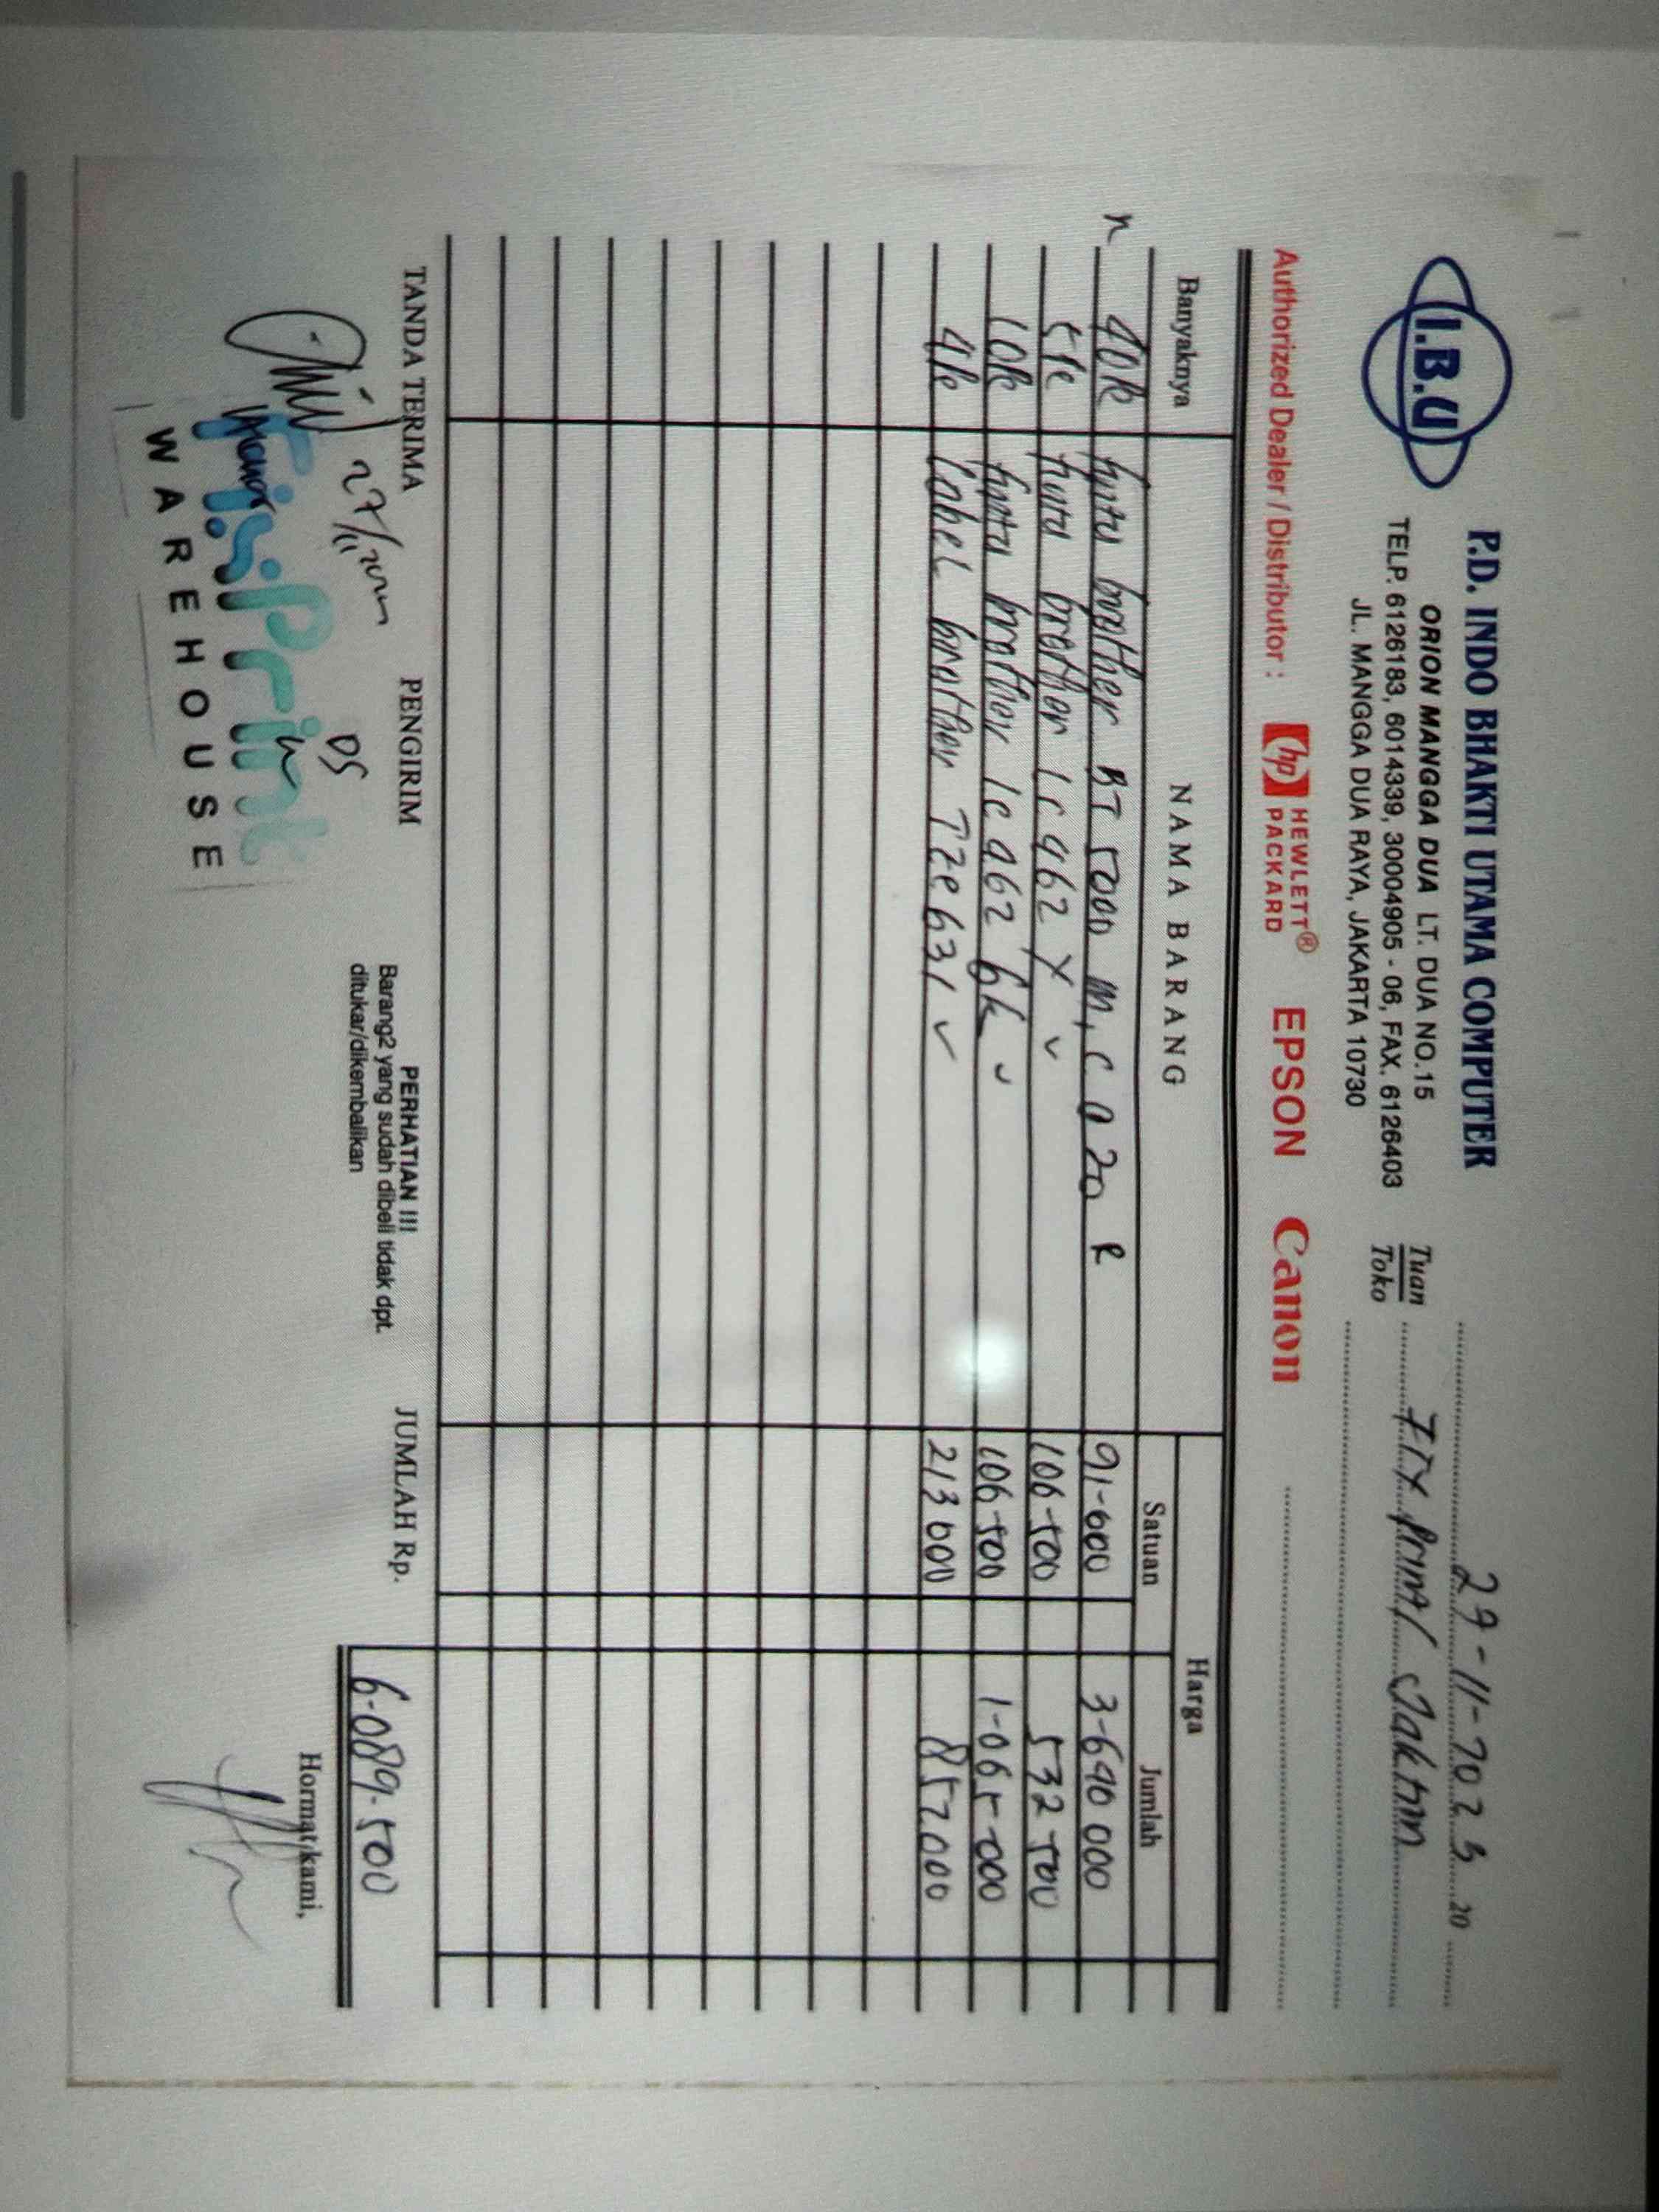 I.B.U
P.D. INDO BHAKTI UTAMA COMPUTER
ORION MANGGA DUA LT. DUA NO.15
TELP. 6126183, 6014339, 30004905 - 06, FAX. 6126403
JL. MANGGA DUA RAYA, JAKARTA 10730
20
Tuan
Toko
Authorized Dealer / Distributor :
hp HEWLETT® PACKARD
EPSON
Canon
Banyaknya NAMA BARANG Harga
Satuan Jumlah
brother BT 5000 m, c 91-600 3-640 000
brother lc 462 Y 106 500 532 500
brother lc 462 bk 106 500 1-065 000
4 label brother TZe 631 213 000 852000
TANDA TERIMA
PENGIRIM
PERHATIAN !!!
Barang2 yang sudah dibeli tidak dpt.
ditukar/dikembalikan
JUMLAH Rp. 6-089-500
Hormat kami,
DS
Print
WAREHOUSE